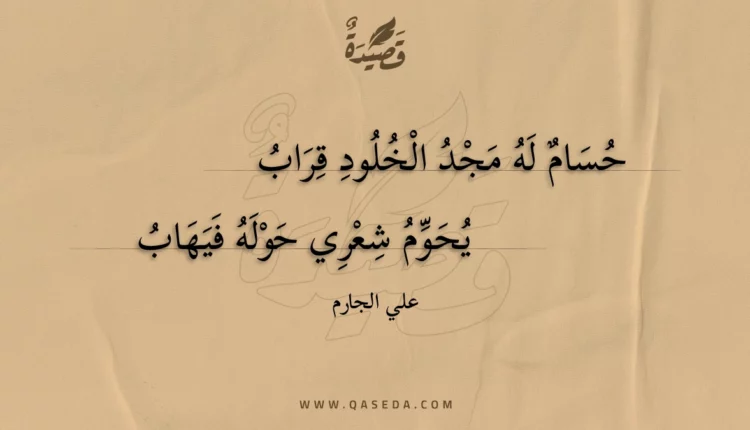 قَصِيدَةٌ
حُسَامٌ لَهُ مَجْدُ الْخُلُودِ قِرَابُ
يُحَوِّمُ شِعْرِي حَوْلَهُ فَيَهَابُ
علي الجارم
WWW.QASEDA.COM